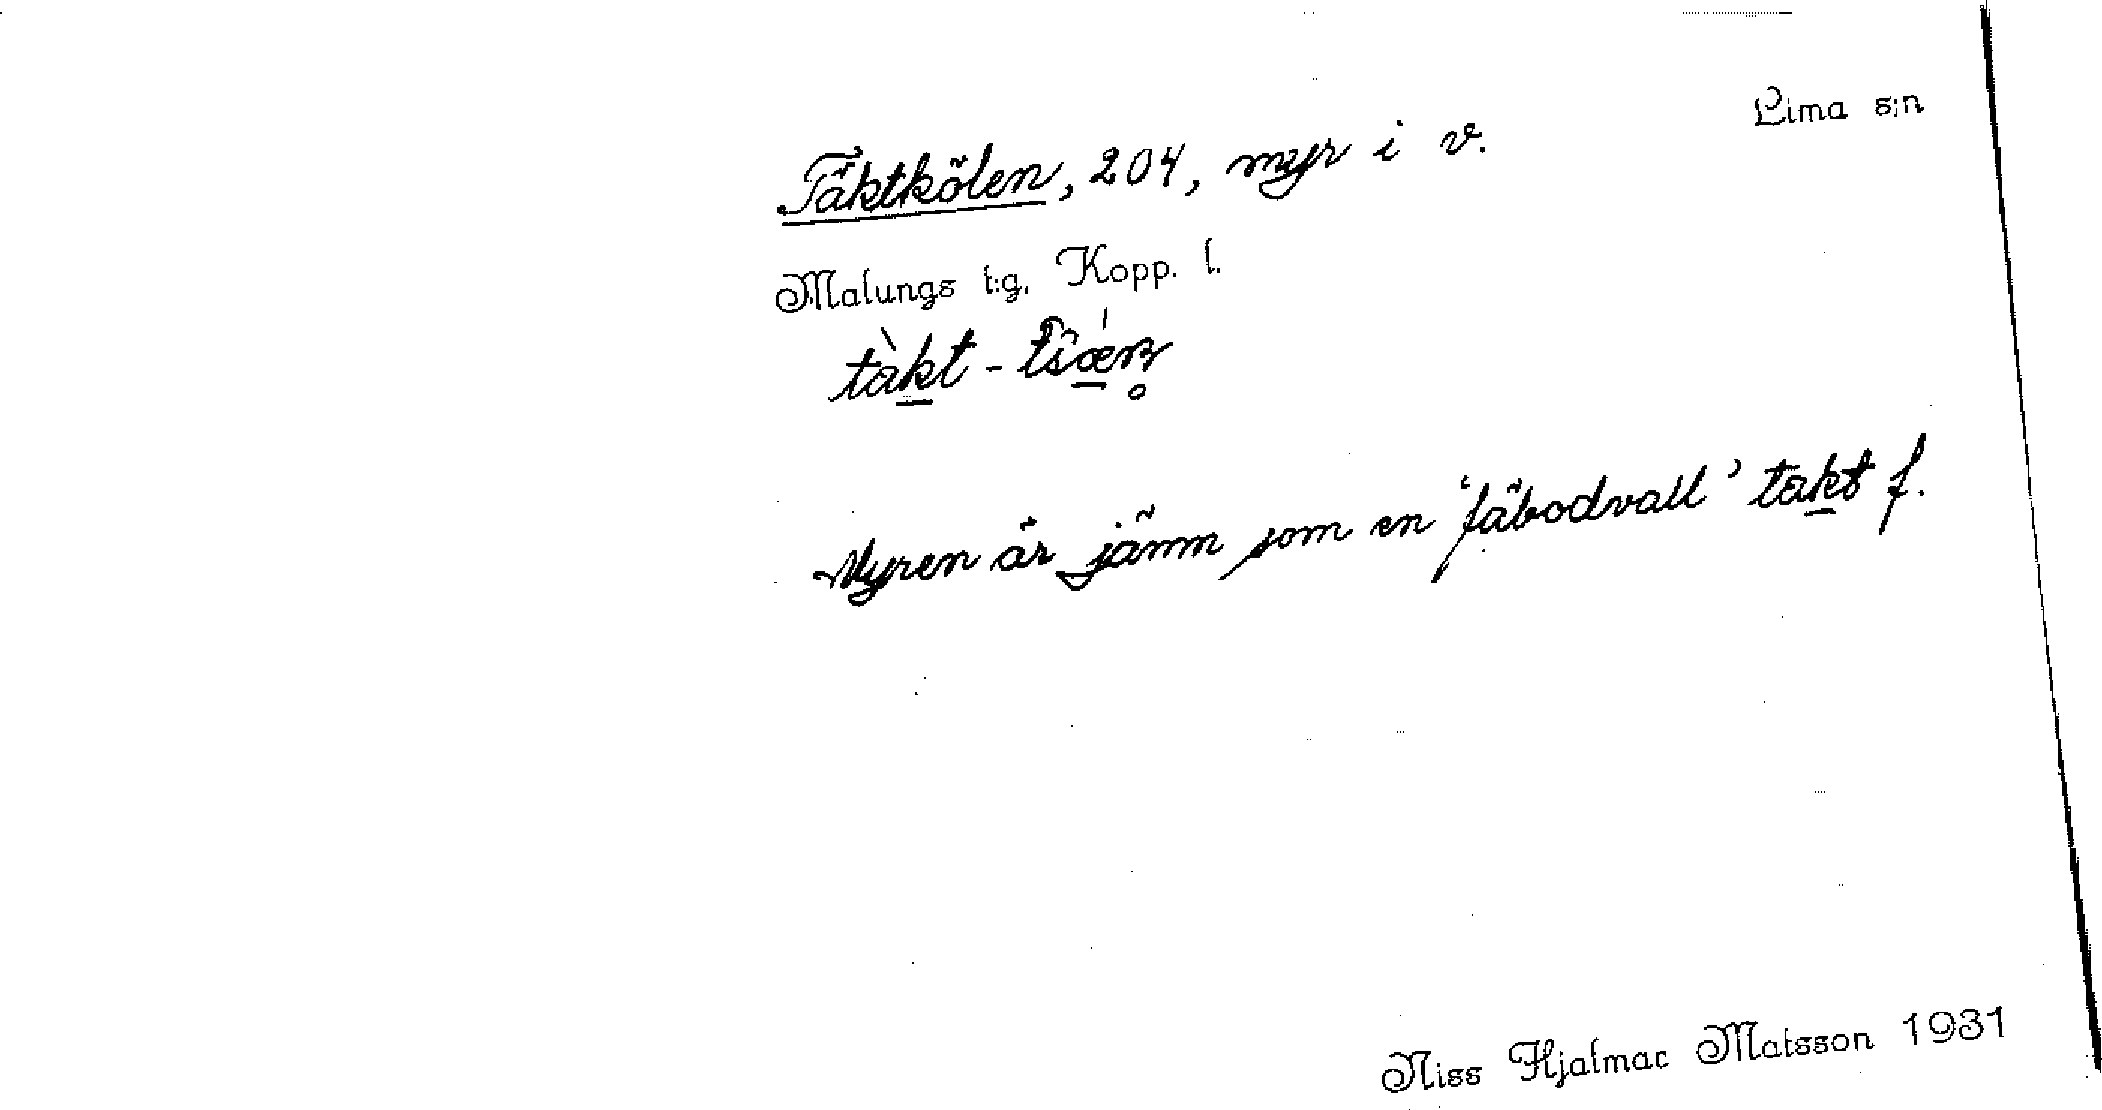 Lima s:n
Täktkölen, 204, myr i v.
Malungs t:g. Kopp. l.
tàkt - tsǽn̥
Myren är jämn som en 'fäbodvall' takt f.
Niss Hjalmar Matsson 1931